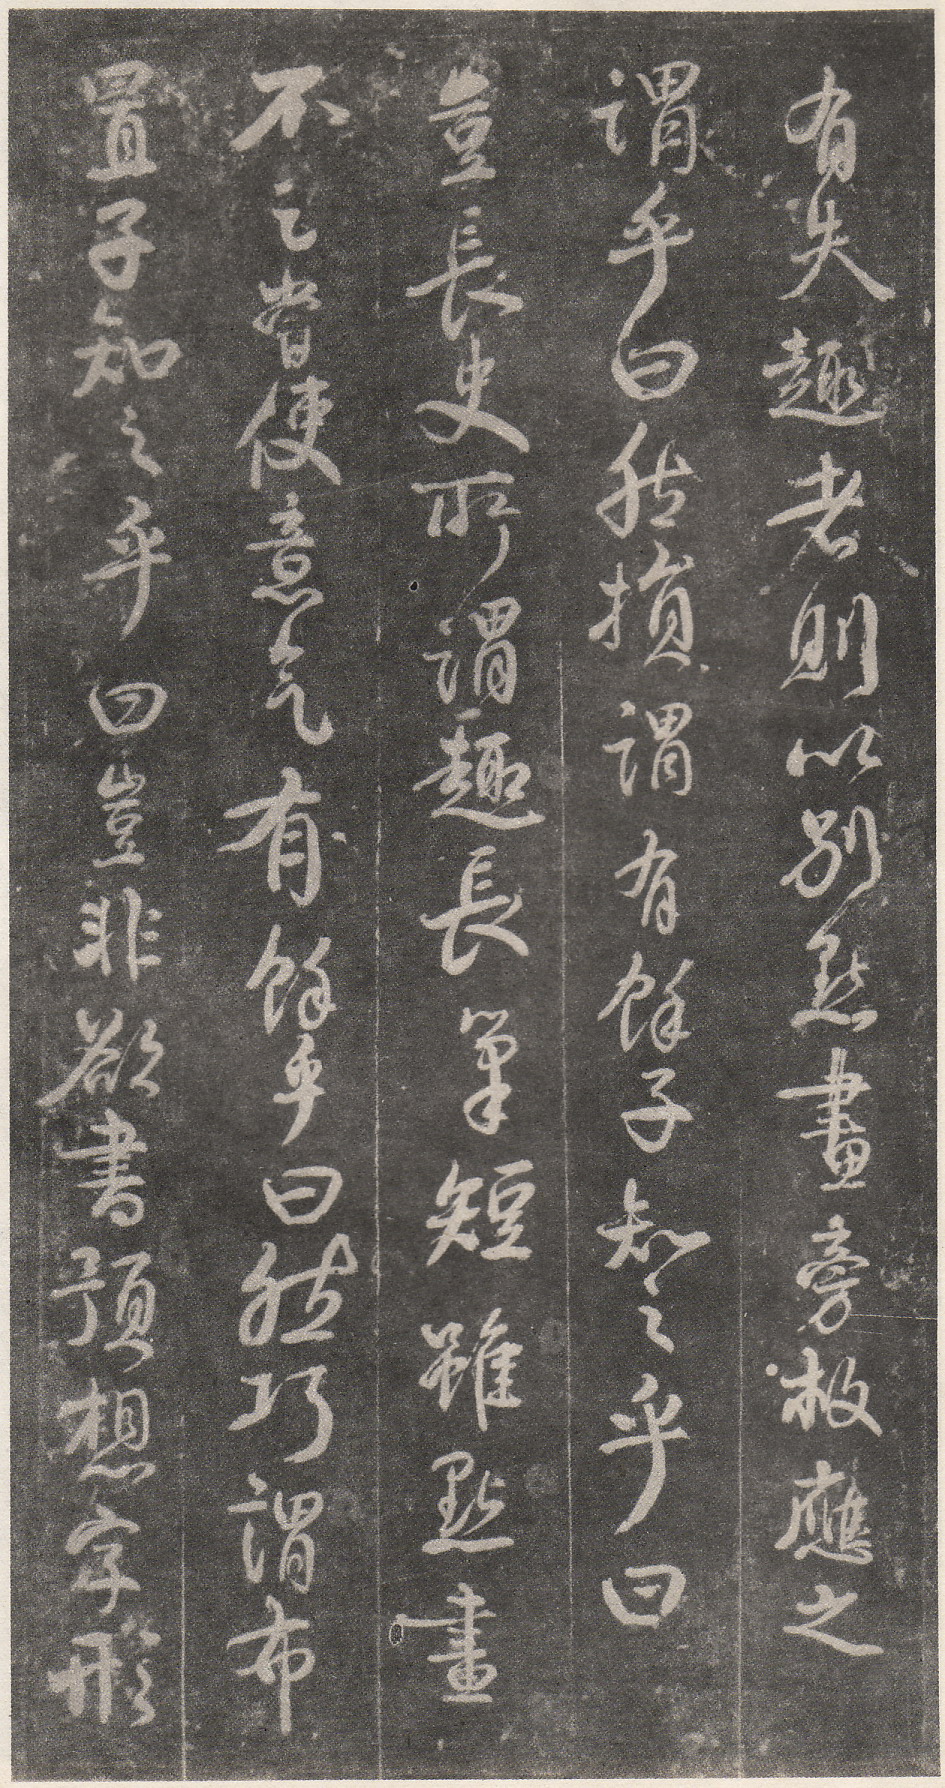 有失趣者則以別點畫旁救應之
謂乎曰然損謂有餘子知之乎曰
豈長史所謂趣長筆短雖點畫
不足嘗使意氣有餘乎曰然巧謂布
置子知之乎曰豈非欲書預想字形